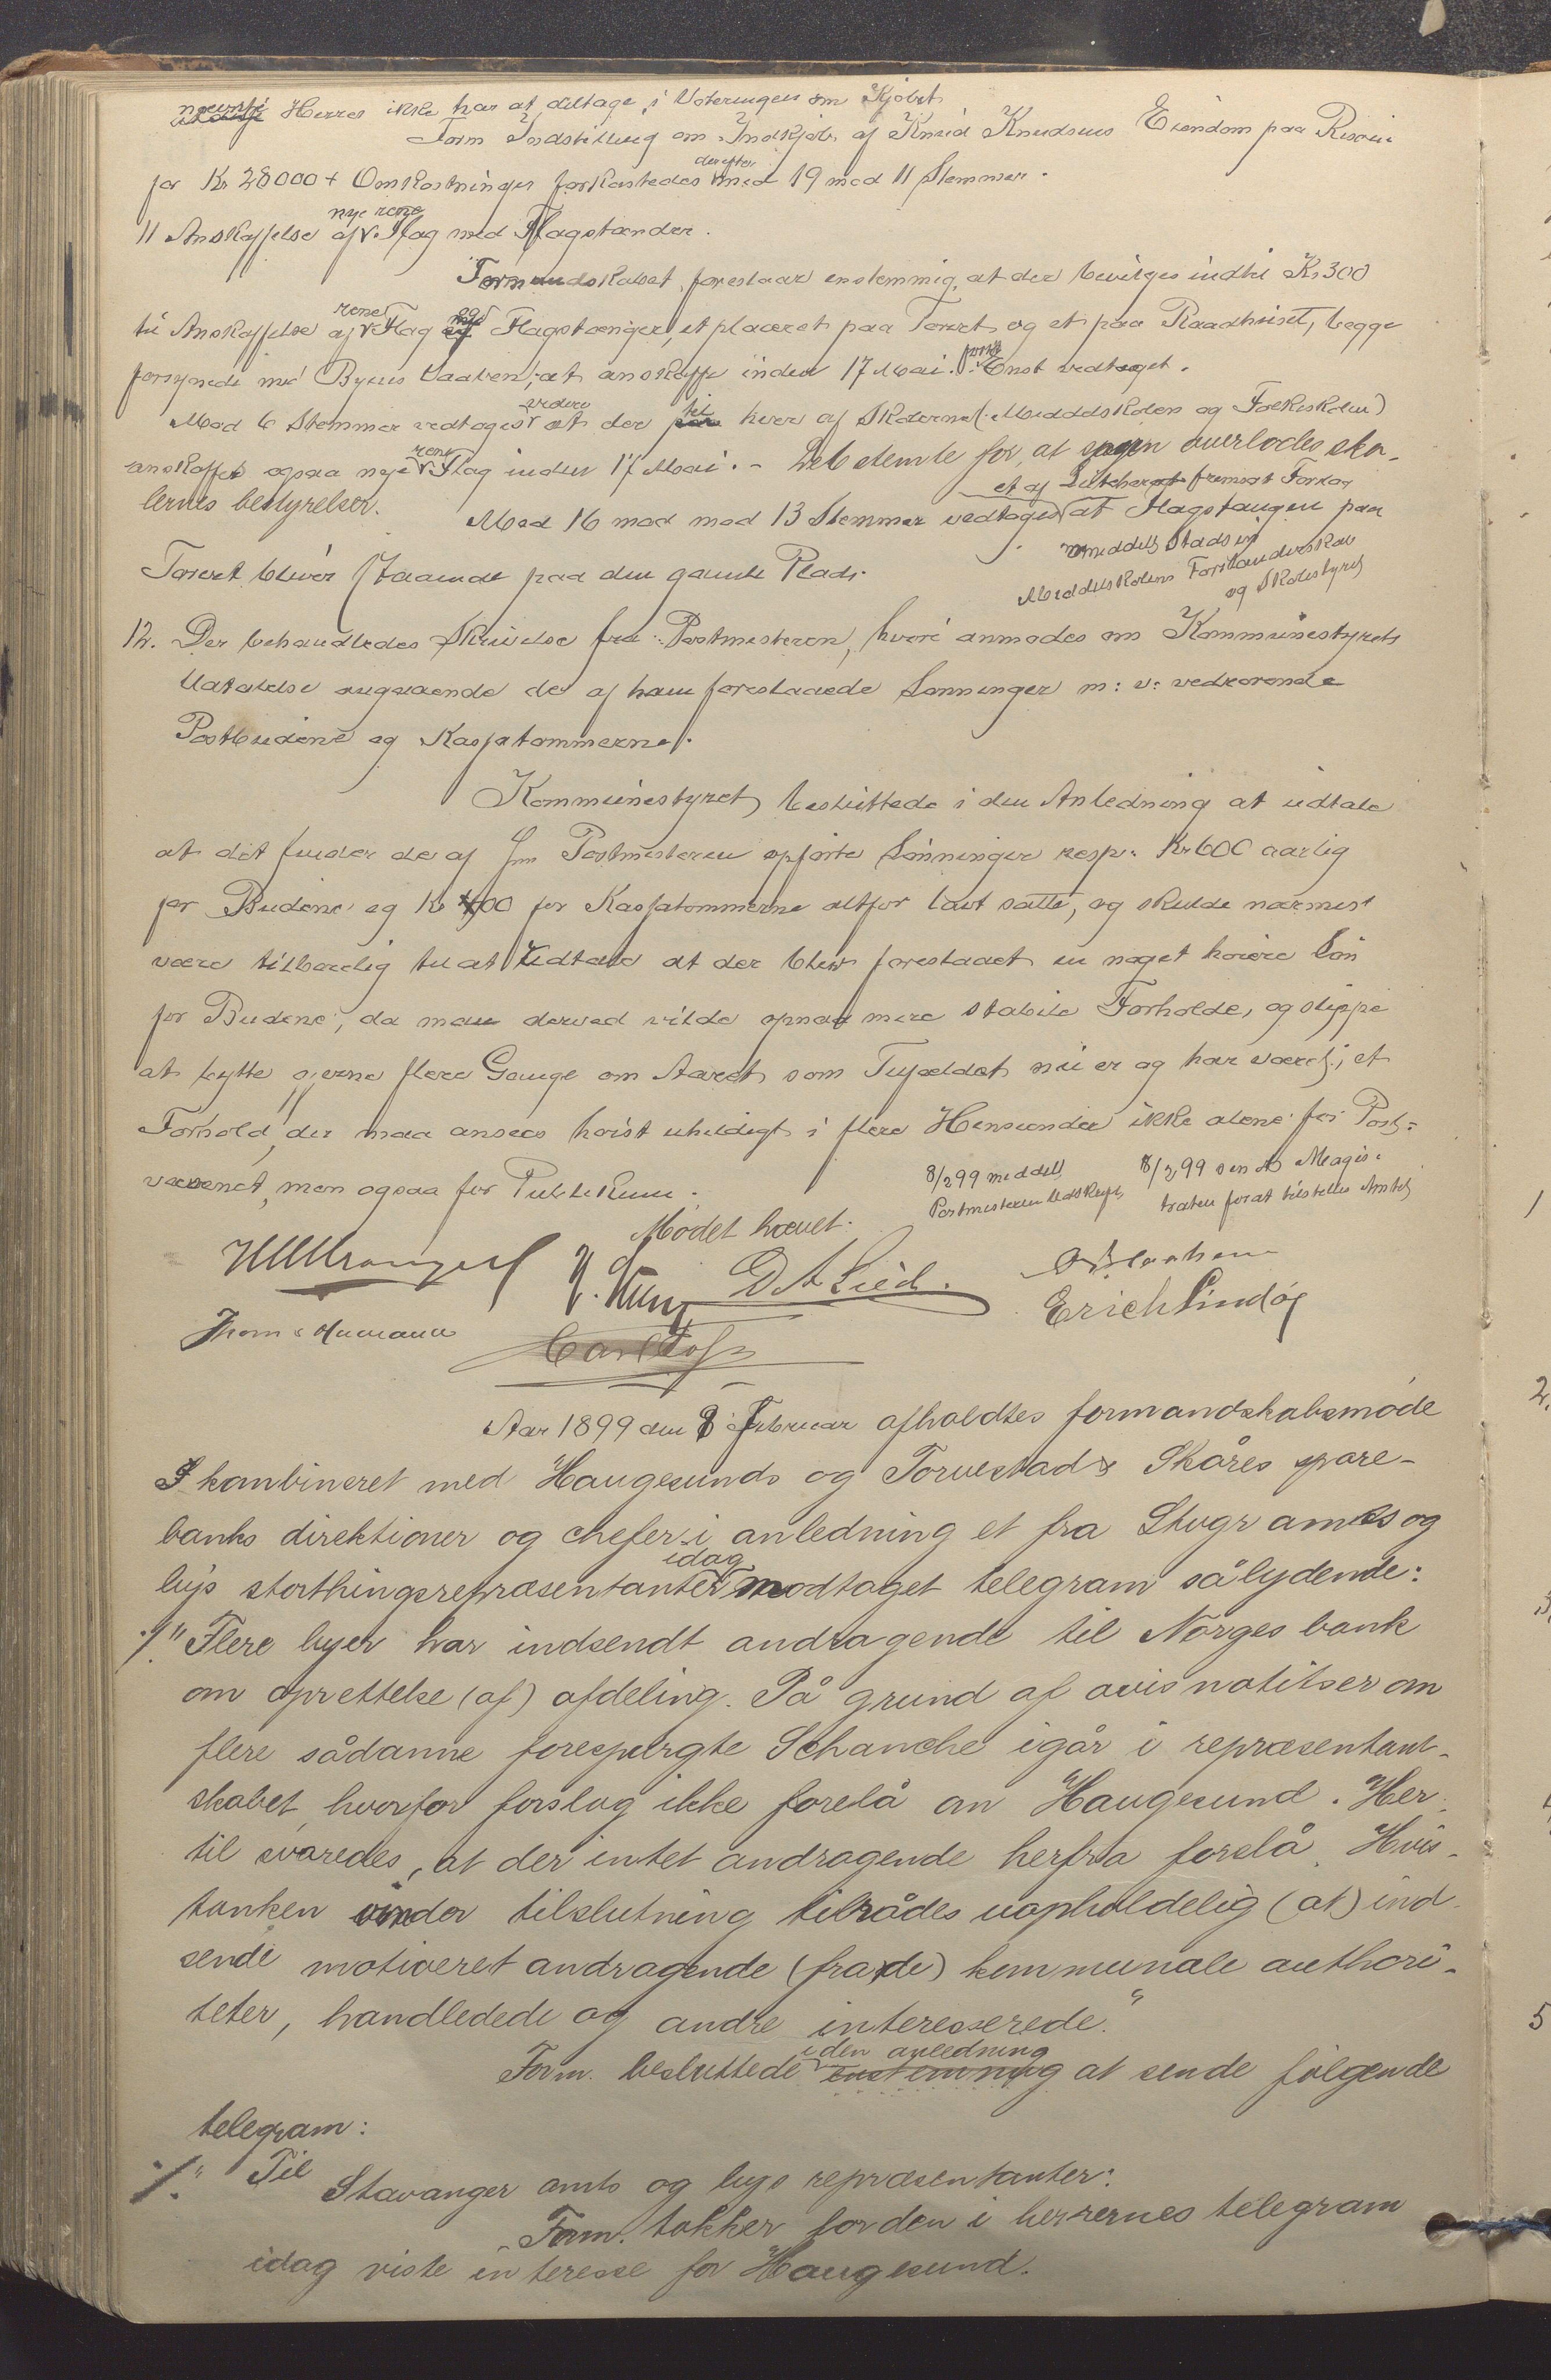 nævnte Herrer ikke har at deltage i Voteringen om Kjøbet
Form Indstilling om Indkjøb af Knud Knudsens Eiendom paa Risøen
for Kr 28000 + Omkostninger forkastedes derefter med 19 mod 11 Stemmer.
11 Anskaffelse af nye rene Flag med Flagstænder.
Formandskabet foreslaar enstemmig, at der bevilges indtil Kr 300
til Anskaffelse af rene Flag og Flagstænger, et placeret paa Torvet og et paa Raadhuset, begge
forsynede med Byens Vaaben; at anskaffe inden 17 Mai. Enst vedtaget.
Mod 6 Stemmer vedtoges videre at der til hver af Skolerne (Middelskolen og Folkeskolen)
anskaffes ogsaa nye rene Flag inden 17 Mai. - De 6 stemte for, at sagen overlodes sko-
lernes bestyrelser.
Med 16 mod 13 Stemmer vedtoges et af Lütcherath fremsat Forslag at Flagstangen paa
Torvet bliver staaende paa den gamle Plads.
meddelt Stadsing
Middelskolens Forstanderskab
og Skolestyret
12. Der behandledes Skrivelse fra Postmesteren, hvori anmodes om Kommunestyrets
Udtalelse angaaende de af ham foreslaaede Lønninger m: v: vedrørende
Postbudene og Kassetømmerne.
Kommunestyret besluttede i den Anledning at udtale
at det finder de af Hr. Postmesteren opførte Lønninger resp. Kr 600 aarlig
for Budene og Kr 400 for Kassetømmerne altfor lavt satte, og skulde nærmest
være tilbøielig til at udtale at der blev foreslaaet en noget høiere Løn
for Budene, da man derved vilde opnaa mere stabile Forholde, og slippe
at bytte gjerne flere Gange om Aaret som Tilfældet nu er og har været; et
Forhold der maa ansees høist uheldigt i flere Henseender ikke alene for Post-
væsenet, men ogsaa for Publikum.
8/2 99 meddelt
Postmesteren Udskrift
8/2 99 sendt Magis-
traten for at tilstilles Amtet
Mødet hævet.
D A Lie
Erich Lindøe
Aar 1899 den 8 Februar afholdtes formandskabsmøde
kombineret med Haugesunds og Torvestad & Skåres spare-
banks direktioner og chefer i anledning et fra Stvgr amts og
bys storthingsrepræsentanter idag modtaget telegram sålydende:
./. "Flere byer har indsendt andragende til Norges bank
om oprettelse (af) afdeling. På grund af avisnotitser om
flere sådanne forespurgte Schanche igår i repræsentant-
skabet, hvorfor forslag ikke forelå om Haugesund. Her-
til svaredes, at der intet andragende herfra forelå. Hvis
tanken vinder tilslutning tilrådes uopholdelig (at) ind-
sende motiveret andragende (fra de) kommunale authori-
teter, handledede og andre interesserede."
Form. besluttede i den anledning enstemmig at sende følgende
telegram:
./. "Til
Stavanger amts og bys repræsentanter:
Form. takker for den i herrernes telegram
idag viste interesse for Haugesund.